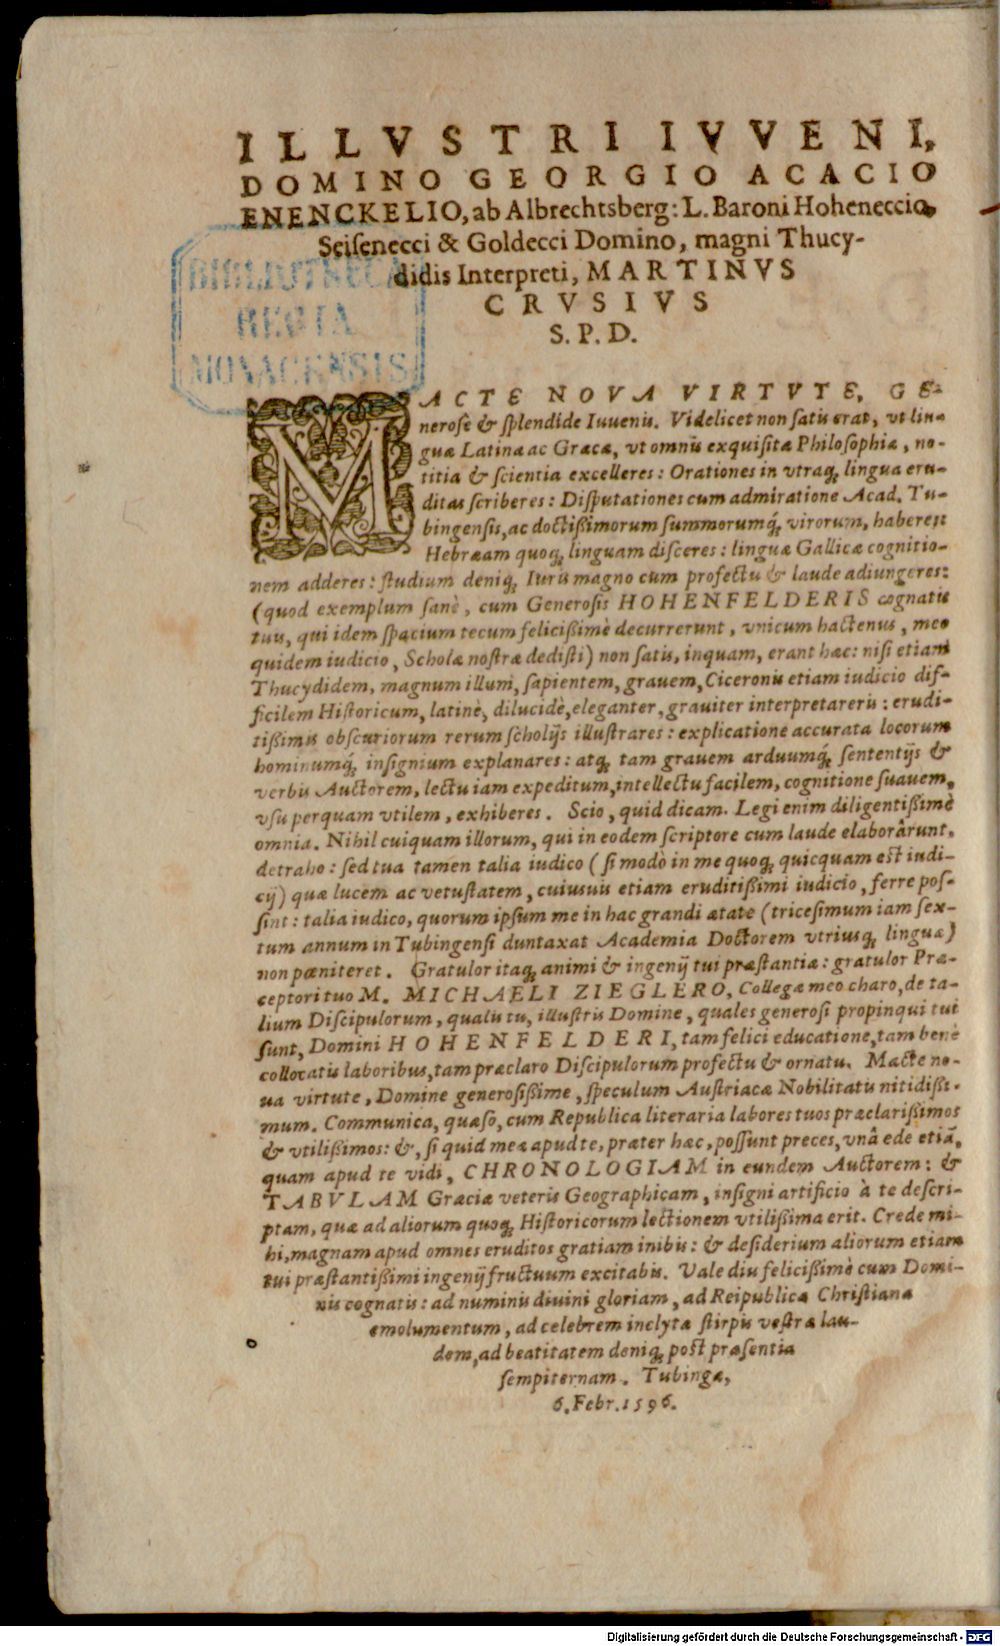 ILLVSTRI IVVENI,
DOMINO GEORGIO ACACIO
ENENCKELIO, ab Albrechtsberg: L. Baroni Hoheneccio,
Seiſenecci & Goldecci Domino, magni Thucy-
didis Interpreti, MARTINVS
CRVSIVS
S. P. D.
BIBLIOTHECA
REGIA
MONACENSIS
MACTE NOVA VIRTVTE, GE-
neroſe & ſplendide Iuuenis. Videlicet non ſatis erat, vt lin-
guæ Latinæ ac Græcæ, vt omnis exquiſitæ Philoſophiæ, no-
titia & ſcientia excelleres: Orationes in vtraq́; lingua eru-
ditas ſcriberes: Diſputationes cum admiratione Acad. Tu-
bingenſis, ac doctißimorum ſummorumq́; virorum, haberes:
Hebræam quoq; linguam diſceres: linguæ Gallicæ cognitio-
nem adderes: ſtudium deniq; Iuris magno cum profectu & laude adiungeres:
(quod exemplum ſanè, cum Generoſis HOHENFELDERIS cognatis
tuis, qui idem ſpacium tecum felicißimè decurrerunt, vnicum hactenus, meo
quidem iudicio, Scholæ noſtræ dediſti) non ſatis, inquam, erant hæc: niſi etiam
Thucydidem, magnum illum, ſapientem, grauem, Ciceronis etiam iudicio dif-
ficilem Hiſtoricum, latinè, dilucidè, eleganter, grauiter interpretareris: erudi-
tißimis obſcuriorum rerum ſcholijs illuſtrares: explicatione accurata locorum
hominumq́; inſignium explanares: atq; tam grauem arduumq́; ſententijs &
verbis Auctorem, lectu iam expeditum, intellectu facilem, cognitione ſuauem,
vſu perquam vtilem, exhiberes. Scio, quid dicam. Legi enim diligentißimè
omnia. Nihil cuiquam illorum, qui in eodem ſcriptore cum laude elaborârunt,
detraho: ſed tua tamen talia iudico (ſi modò in me quoq; quicquam eſt iudi-
cij) quæ lucem ac vetuſtatem, cuiusuis etiam eruditißimi iudicio, ferre poſ-
ſint: talia iudico, quorum ipſum me in hac grandi ætate (triceſimum iam ſex-
tum annum in Tubingenſi duntaxat Academia Doctorem vtriusq; linguæ)
non pœniteret. Gratulor itaq; animi & ingenij tui præſtantiæ: gratulor Præ-
ceptori tuo M. MICHAELI ZIEGLERO, Collegæ meo charo, de ta-
lium Diſcipulorum, qualis tu, illuſtris Domine, quales generoſi propinqui tui
ſunt, Domini HOHENFELDERI, tam felici educatione, tam benè
collocatis laboribus, tam præclaro Diſcipulorum profectu & ornatu. Macte no-
ua virtute, Domine generoſißime, ſpeculum Auſtriacæ Nobilitatis nitidißi-
mum. Communica, quæſo, cum Republica literaria labores tuos præclarißimos
& vtilißimos: &, ſi quid meæ apud te, præter hæc, poſſunt preces, vnâ ede etiã,
quam apud te vidi, CHRONOLOGIAM in eundem Auctorem: &
TABVLAM Græciæ veteris Geographicam, inſigni artificio à te deſcri-
ptam, quæ ad aliorum quoq; Hiſtoricorum lectionem vtilißima erit. Crede mi-
hi, magnam apud omnes eruditos gratiam inibis: & deſiderium aliorum etiam
tui præſtantißimi ingenij fructuum excitabis. Vale diu felicißimè cum Domi-
nis cognatis: ad numinis diuini gloriam, ad Reipublicæ Chriſtianæ
emolumentum, ad celebrem inclytæ ſtirpis veſtræ lau-
dem, ad beatitatem deniq; poſt præſentia
ſempiternam. Tubingæ,
6. Febr. 1596.
Digitalisierung gefördert durch die Deutsche Forschungsgemeinschaft - DFG